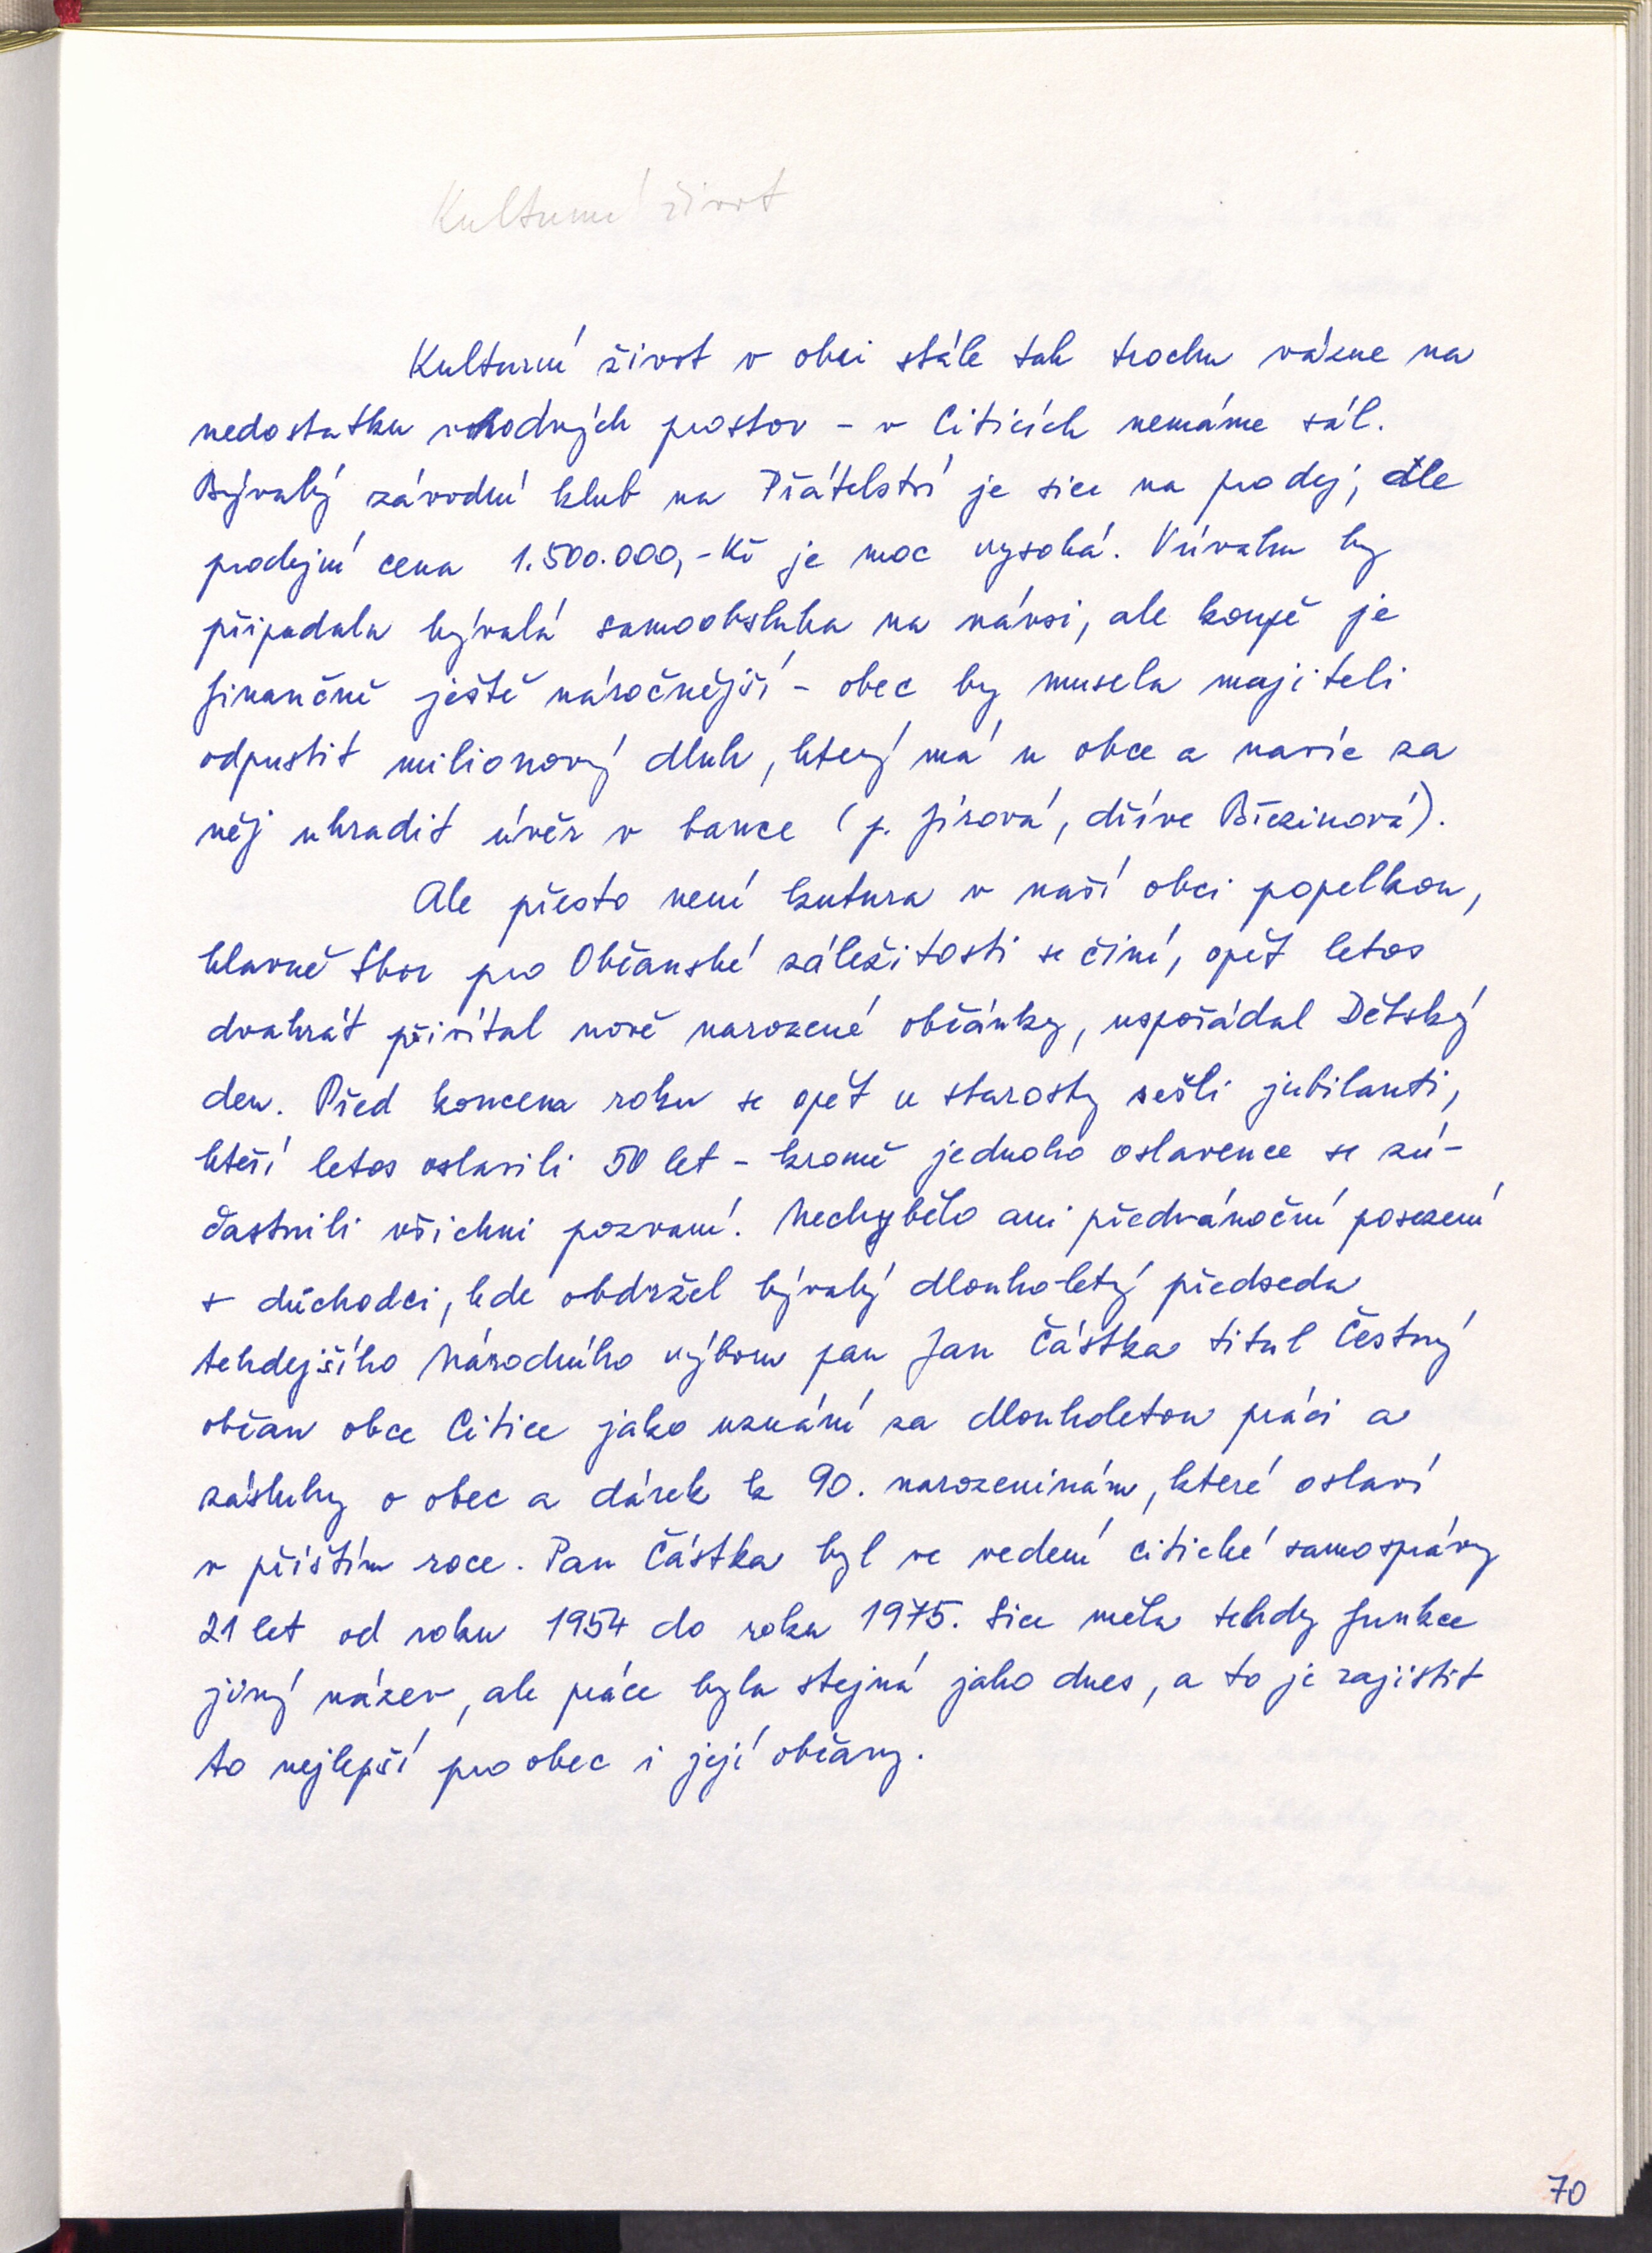 Kulturní život
Kulturní život v obci stále tak trochu vázne na
nedostatku vhodných prostor - v Citicích nemáme sál.
Bývalý závodní klub na Přátelství je sice na prodej, ale
prodejní cena 1.500.000,-Kč je moc vysoká. V úvahu by
připadala bývalá samoobsluha na návsi, ale koupě je
finančně ještě náročnější - obec by musela majiteli
odpustit milionový dluh, který má u obce a navíc za
něj uhradit úvěr v bance (p. Jírová, dříve Březinová).
Ale přesto není kutura v naší obci popelkou,
hlavně Sbor pro Občanské záležitosti se činí, opět letos
dvakrát přivítal nově narozené občánky, uspořádal Dětský
den. Před koncem roku se opět u starosty sešli jubilanti,
kteří letos oslavili 50 let - kromě jednoho oslavence se zú-
častnili všichni pozvaní. Nechybělo ani předvánoční posezení
s důchodci, kde obdržel bývalý dlouholetý předseda
tehdejšího Národního výboru pan Jan Částka titul Čestný
občan obce Citice jako uznání za dlouholetou práci a
zásluhy o obec a dárek k 90. narozeninám, které oslaví
v příštím roce. Pan Částka byl ve vedení citické samosprávy
21 let od roku 1954 do roku 1975. Sice měla tehdy funkce
jiný název, ale práce byla stejná jako dnes, a to je zajistit
to nejlepší pro obec i její občany.
70